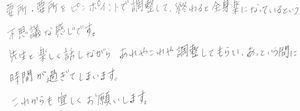 要所要所をピンポイントで調整して、終わると全身楽になっているという
不思議な感じです。
先生と楽しく話しながら あれやこれや調整してもらい、あっという間に
時間が過ぎてしまいます。
これからも宜しくお願いします。